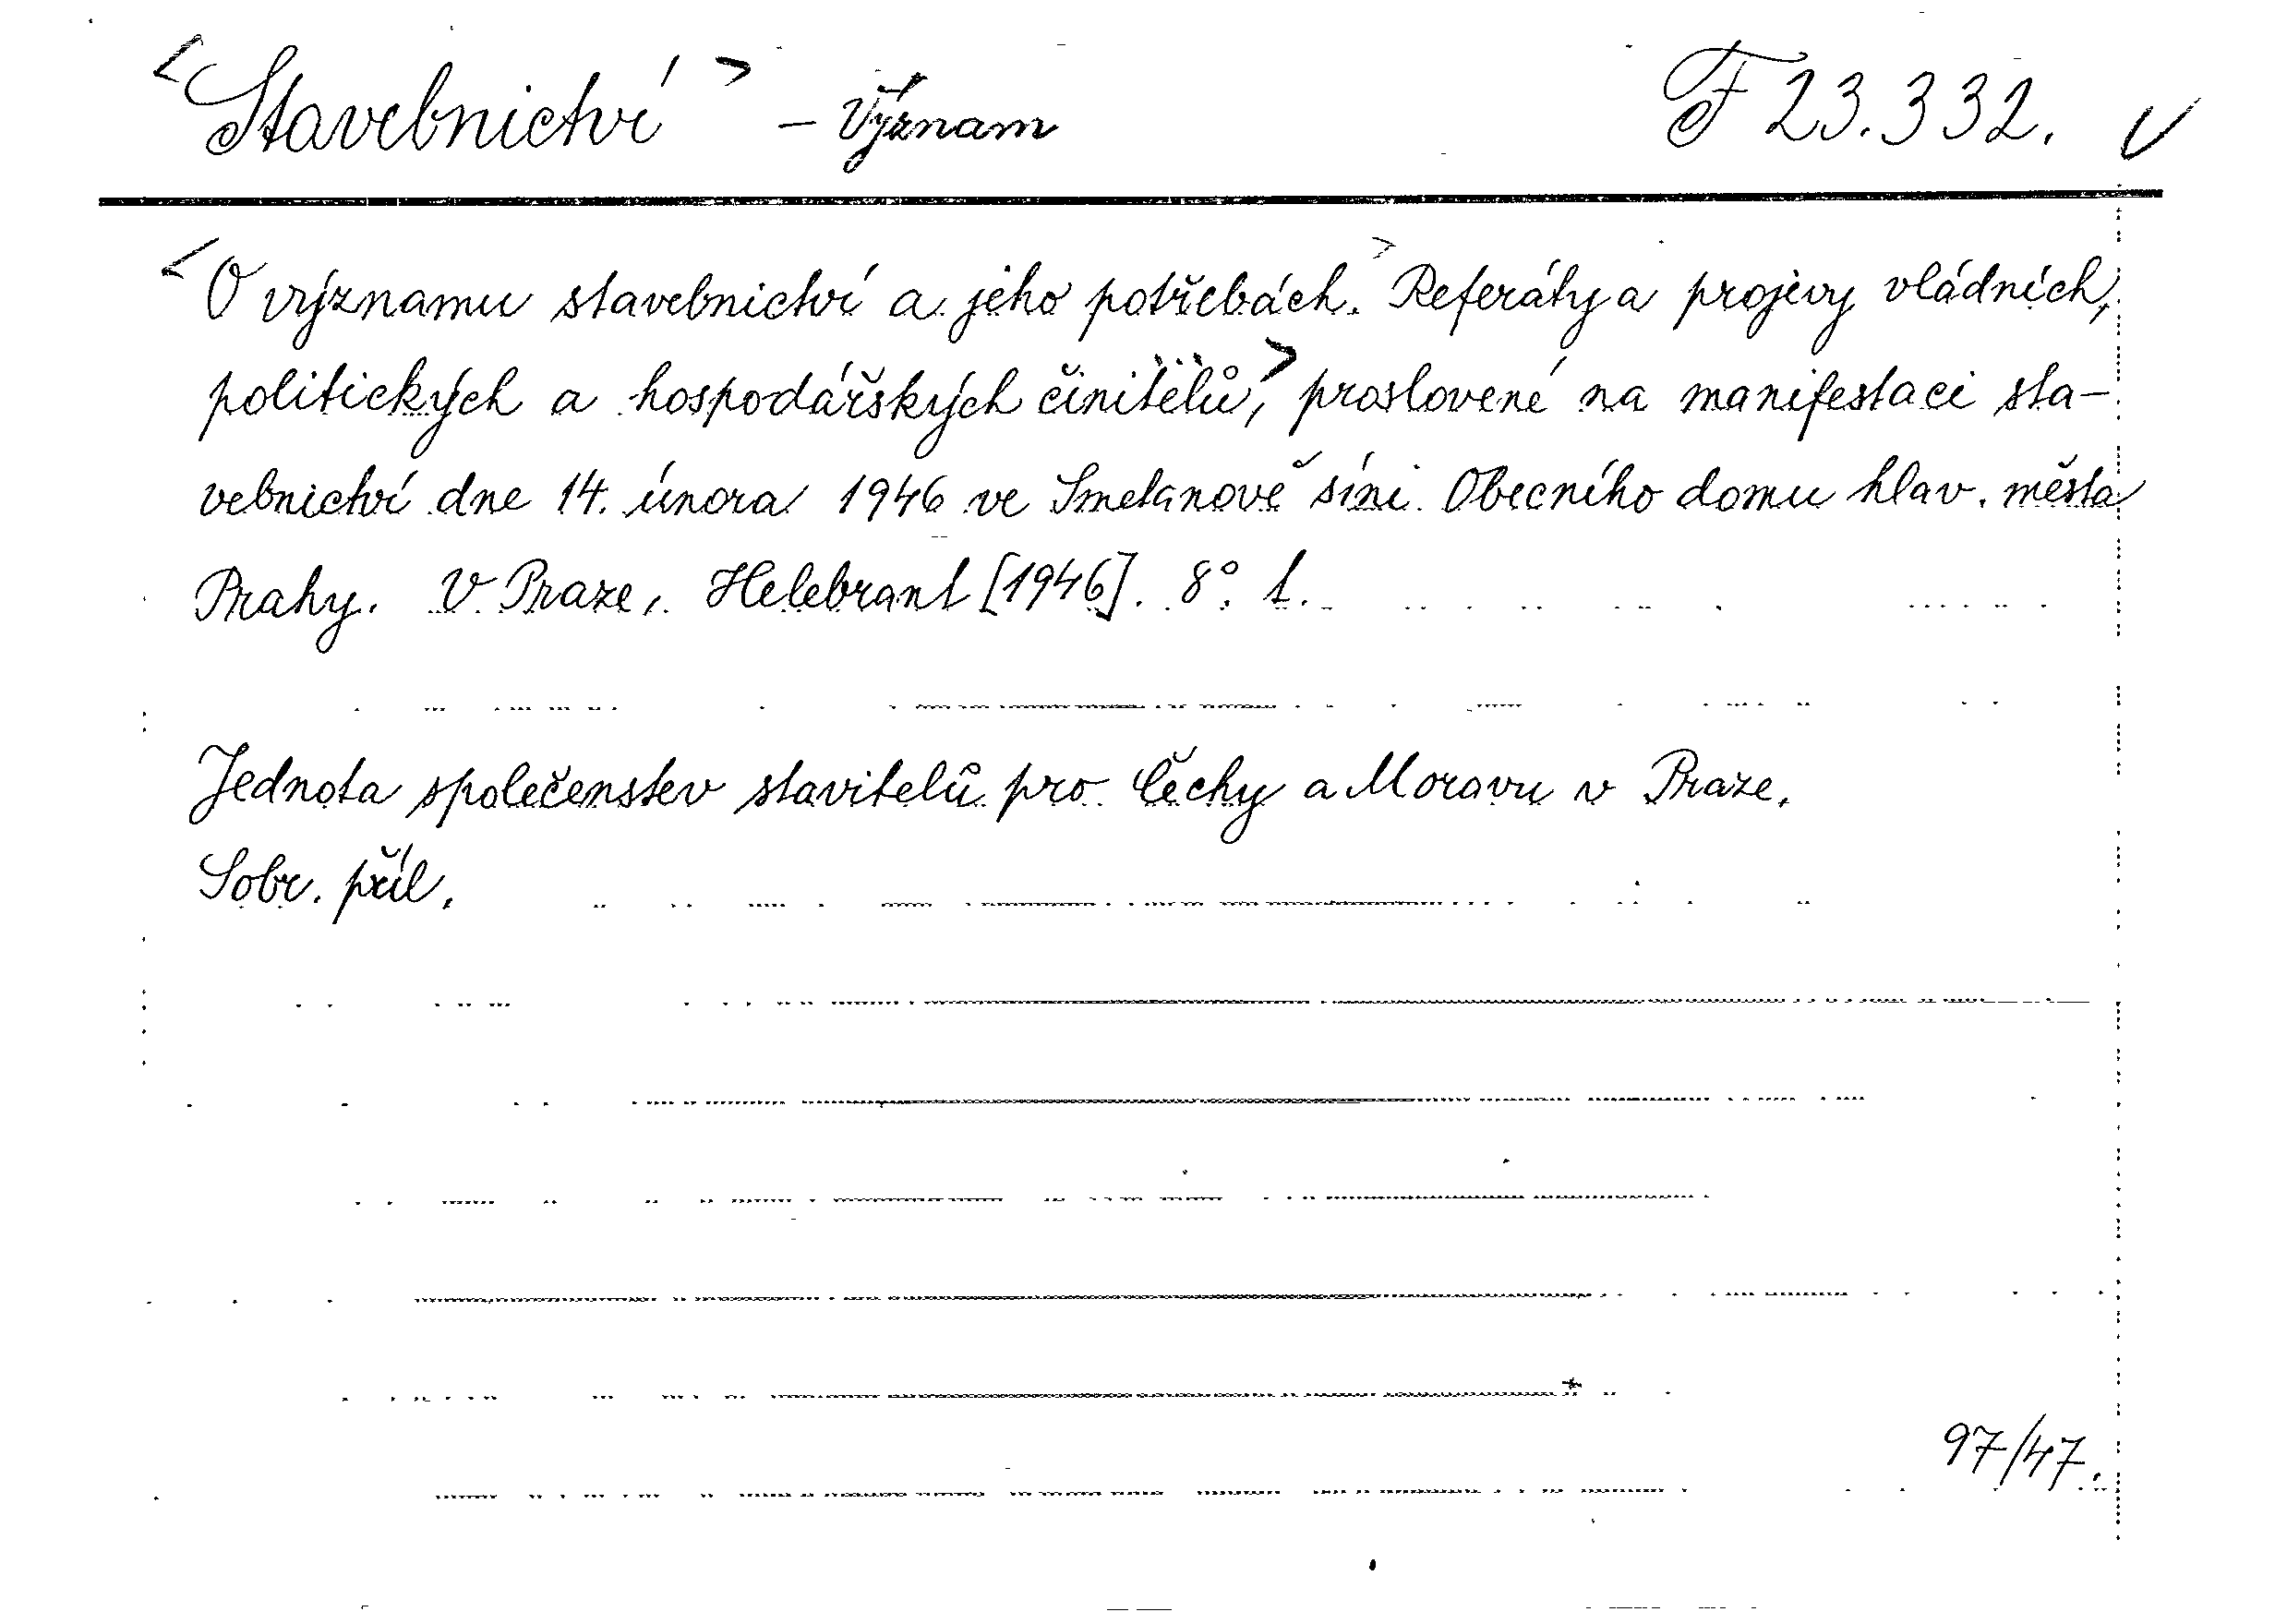 <Stavebnictví> - Význam F 23.332. V
<O významu stavebnictví a jeho potřebách.> Referáty a projevy vládních,
politických a hospodářských činitelů,> proslovené na manifestaci sta-
vebnictví dne 14. února 1946 ve Smetanově síni Obecního domu hlav. města
Prahy. V Praze, Helebrant [1946]. 8°. 1.
Jednota společenstev stavitelů pro Čechy a Moravu v Praze.
Sobr. příl.
97/47.